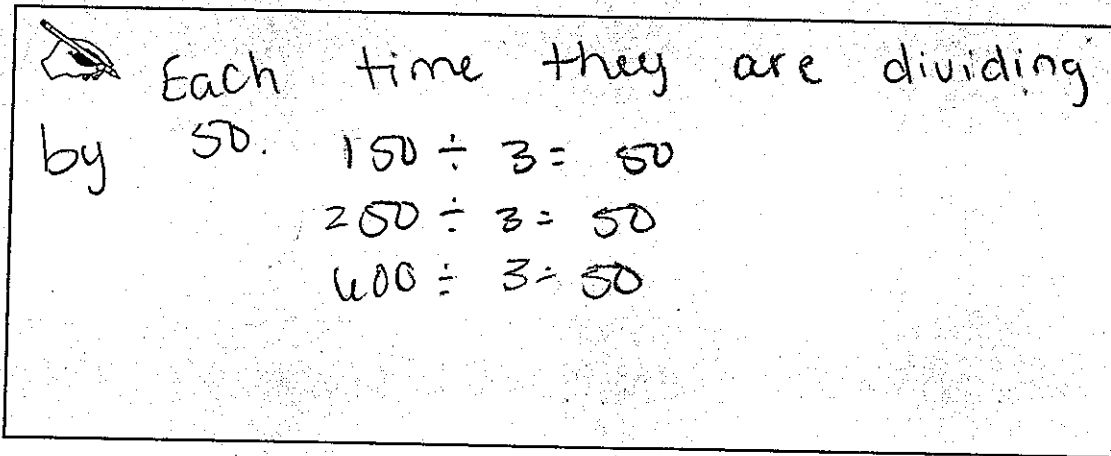 Each time they are dividing
by 50. 150 ÷ 3 = 50
250 ÷ 3 = 50
400 ÷ 3 = 50